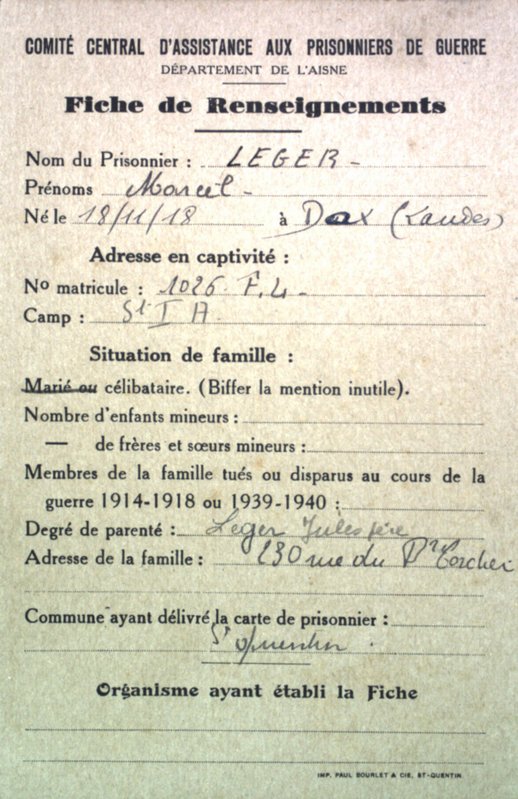 COMITÉ CENTRAL D'ASSISTANCE AUX PRISONNIERS DE GUERRE
DÉPARTEMENT DE L'AISNE
Fiche de Renseignements
Nom du Prisonnier : LEGER -
Prénoms Marcel -
Né le 18/11/18 à Dax (Landes)
Adresse en captivité :
No matricule : 1026 F.4 -
Camp : St I A
Situation de famille :
Marié ou célibataire. (Biffer la mention inutile).
Nombre d'enfants mineurs :
— de frères et sœurs mineurs :
Membres de la famille tués ou disparus au cours de la
guerre 1914-1918 ou 1939-1940 :
Degré de parenté : Leger Jules père
Adresse de la famille : 230 rue du Dr
Commune ayant délivré la carte de prisonnier :
St Quentin
Organisme ayant établi la Fiche
IMP. PAUL BOURLET & CIE, ST-QUENTIN